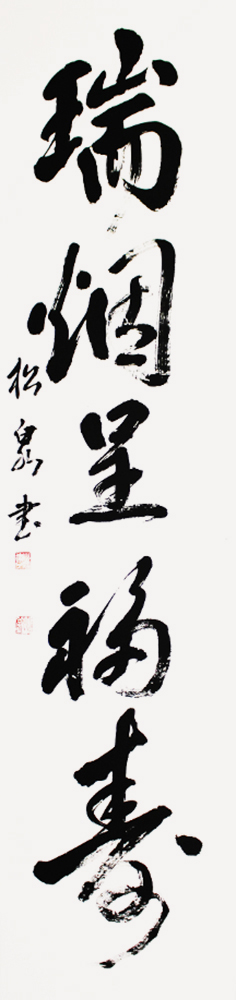 瑞烟呈福寿
松泉書